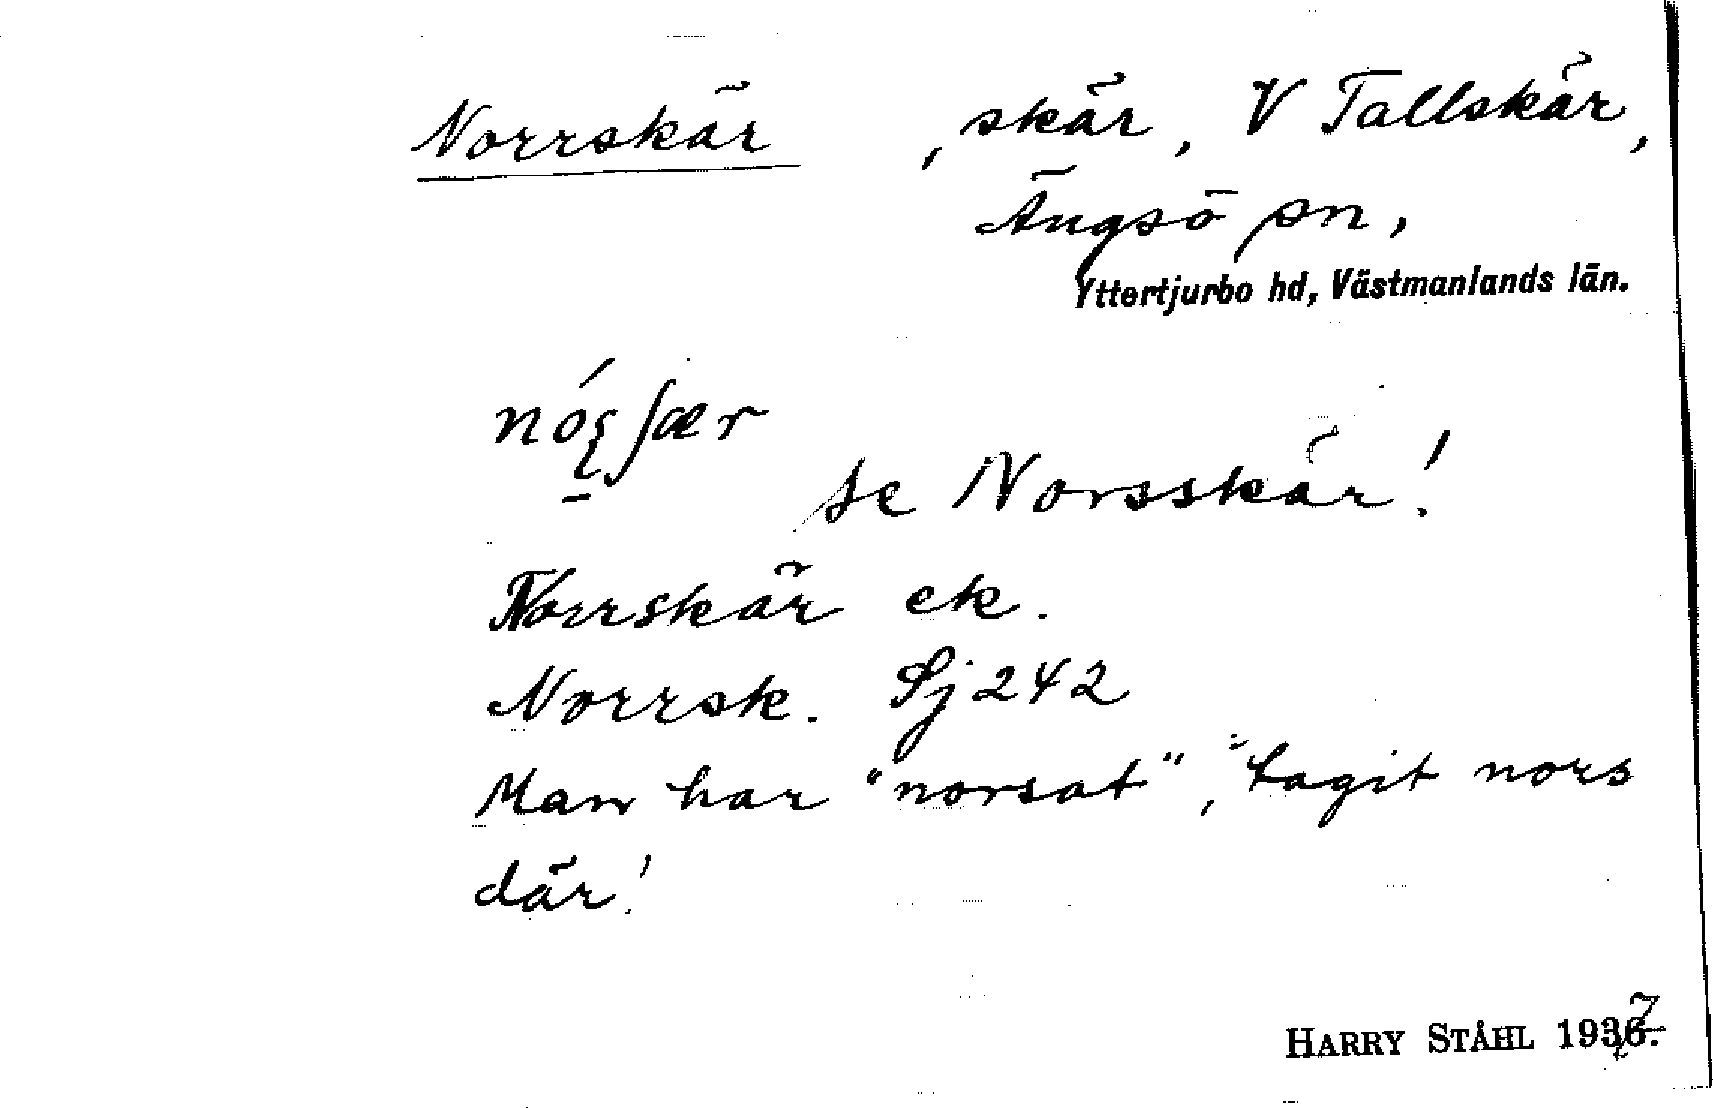 Norrskär, skär, V Tallskär,
Ängsö sn,
Yttertjurbo hd, Västmanlands län.
se Norsskär!
Norrskär ek.
Norrsk. Sj 242
Man har "norsat", tagit nors
där!
HARRY STÅHL 1937.